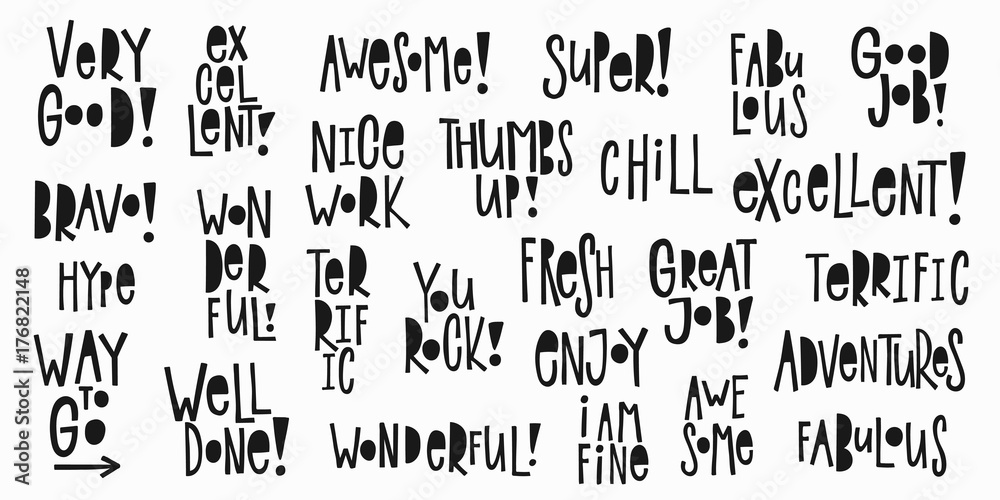 VeRY
GOOD!
ex
CeL
LeNT!
AWeSOMe!
SUPeR!
FABu
LOUS
GOOD
JOB!
NICe
WORK
THUMBS
UP!
CHiLL
eXCeLLeNT!
BRAVO!
WON
DeR
FUL!
HYPe
TeR
RIF
IC
YOU
ROCK!
FReSH
GReAT
JOB!
TeRRiFIC
WAY
TO
GO
WeLL
DONe!
eNJOY
ADVeNTUReS
WONDeRFUL!
i AM
FiNe
AWe
SOMe
FABULOUS
Adobe Stock | #176822148
Adobe Stock